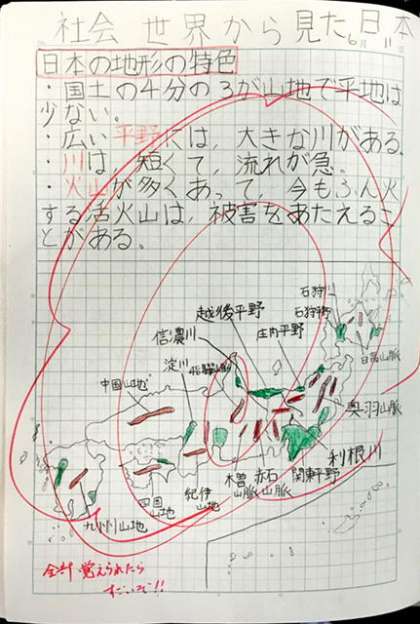 社会 世界から見た日本
6月11日
日本の地形の特色
・国土の4分の3が山地で平地は
少ない。
・広い平野には，大きな川がある。
・川は，短くて，流れが急。
・火山が多くあって，今もふん火
する活火山は，被害をあたえるこ
とがある。
石狩川
越後平野
石狩平野
信濃川
庄内平野
淀川
日高山脈
中国山地
奥羽山脈
利根川
木曽山脈
赤石山脈
関東平野
紀伊山地
四国山地
九州山地
全部覚えられたら
すごいぞ!!